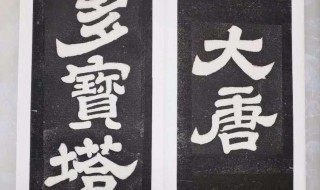 大唐
多寶塔